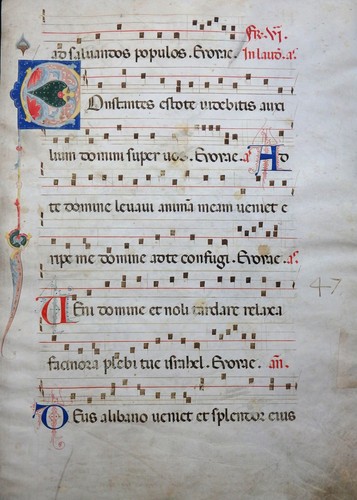 ad saluandos populos. Evovae. Fr. VI.
In laud. a.
Onstantes estote uidebitis auxi
lium domini super uos. Evovae. a. Ad
te domine leuaui animã meam ueniet e
ripe me domine ad te confugi. Evovae. a.
UEni domine et noli tardare relaxa
facinora plebi tue israhel. Evovae. añ.
DEus a libano ueniet et splendor eius
47